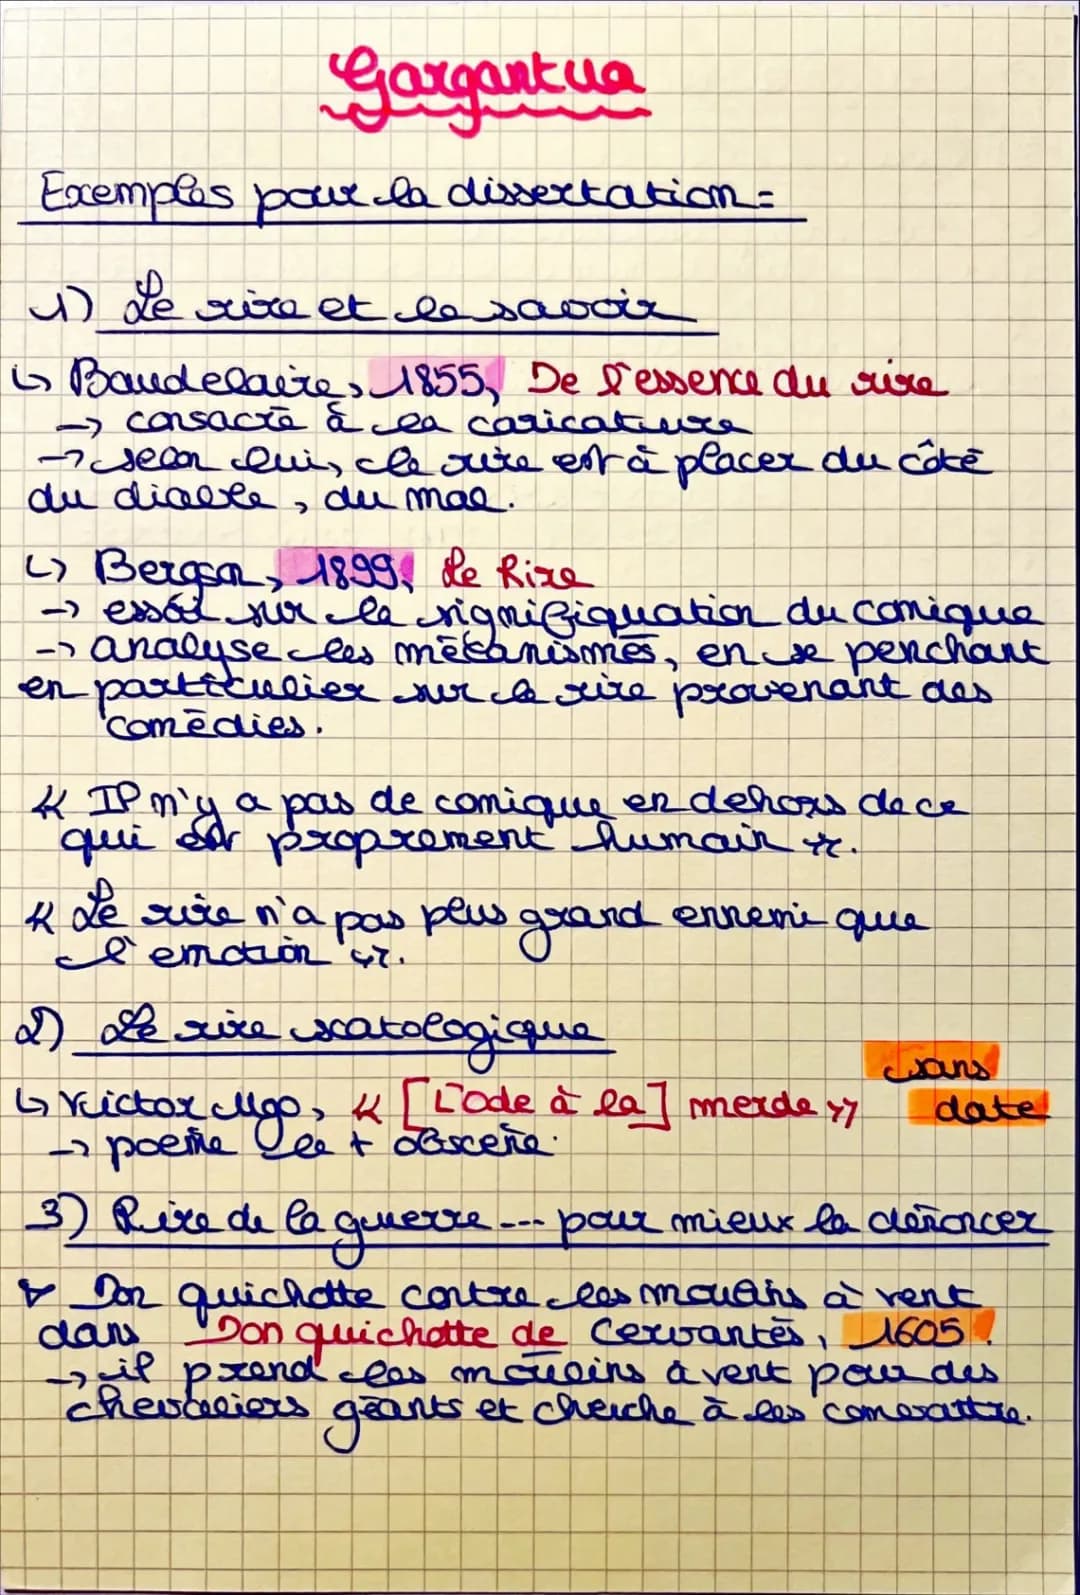 Gargantua
Exemples pour la dissertation =
1) Le rire et le savoir
↳ Baudelaire, 1855, De l'essence du rire
→ consacré à la caricature
→ selon lui, le rire est à placer du côté
du diable, du mal.
↳ Bergson, 1899, Le Rire
→ essai sur la signifiquation du comique
→ analyse les mécanismes, en se penchant
en particulier sur le rire provenant des
comédies.
« Il n'y a pas de comique en dehors de ce
qui est proprement humain ».
« Le rire n'a pas plus grand ennemi que
l'emotion ».
2) Le rire scatologique
sans
↳ Victor Ugo, « [L'Ode à la] merde » date
→ poème le + obscène.
3) Rire de la guerre --- pour mieux la dénoncer
Don quichotte contre les moulins à vent
dans Don quichotte de Cervantès, 1605.
→ il prend les moulins à vent pour des
chevaliers géants et cherche à les comesattre.